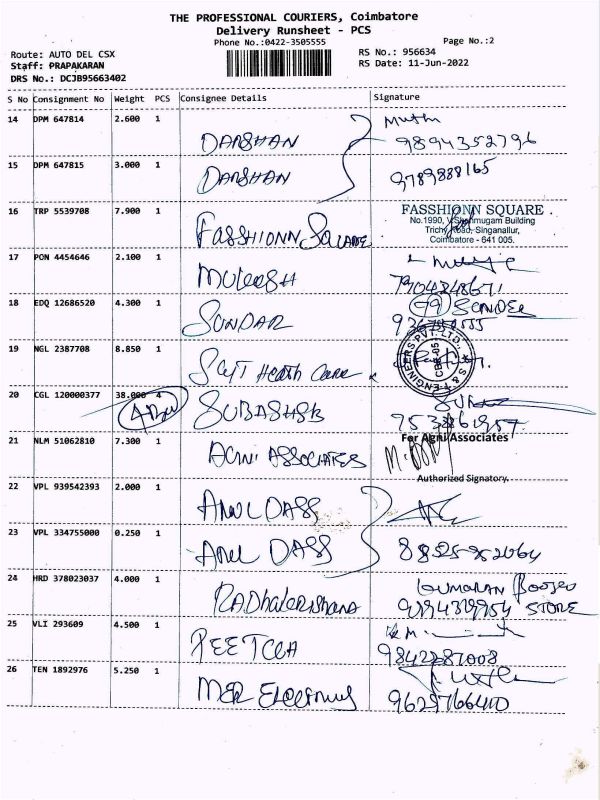 THE PROFESSIONAL COURIERS, Coimbatore
Delivery Runsheet - PCS
Phone No.:0422-3505555
Page No.:2
Route: AUTO DEL CSX
RS No.: 956634
Staff: PRAPAKARAN
RS Date: 11-Jun-2022
DRS No.: DCJB95663402
S No Consignment No Weight PCS Consignee Details Signature
14 DPM 647814 2.600 1 DARSHAN Muthu 9894352796
15 DPM 647815 3.000 1 DARSHAN 9789888165
16 TRP 5539708 7.900 1 FASSHIONN SQUARE
FASSHIONN SQUARE
No.1990, Shanmugam Building
Trichy Road, Singanallur,
Coimbatore - 641 005.
17 PON 4454646 2.100 1 7904248671
18 EDQ 12686520 4.300 1 SUNDAR
19 NGL 2387708 8.850 1 Heath Care
S & T ENGINEERS PVT. LTD.
CBE-05
20 CGL 120000377 38.000 4
21 NLM 51062810 7.300 1 AGNI ASSOCIATES
For Agni Associates
Authorized Signatory.
22 VPL 939542393 2.000 1 ARUL DASS
23 VPL 334755000 0.250 1 ARUL DASS
24 HRD 378023037 4.000 1 RADhakrishana STORE
25 VLI 293609 4.500 1 9842287008
26 TEN 1892976 5.250 1 9629766400